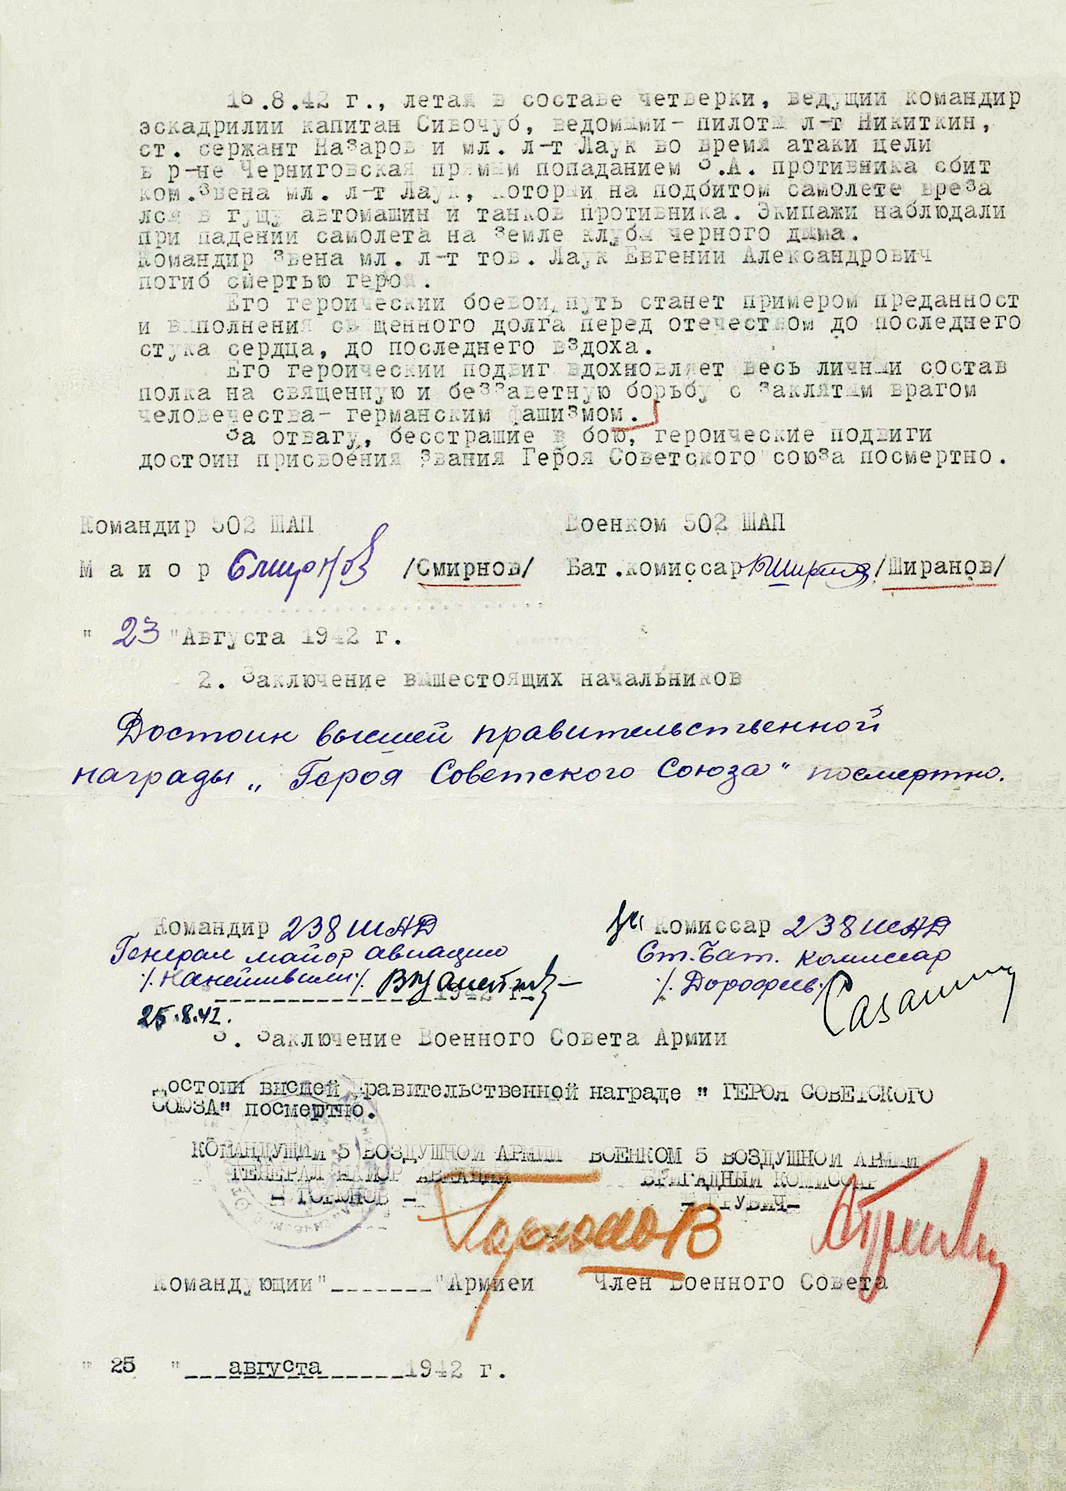 16.8.42 г., летая в составе четверки, ведущий командир
эскадрилии капитан Сивочуб, ведомыми- пилоты л-т Никиткин,
ст. сержант Назаров и мл. л-т Лаук во время атаки цели
в р-не Черниговская прямым попаданием З.А. противника сбит
ком.звена мл. л-т Лаук, который на подбитом самолете вреза
лся в гущу автомашин и танков противника. Экипажи наблюдали
при падении самолета на земле клубы черного дыма.
Командир звена мл. л-т тов. Лаук Евгений Александрович
погиб смертью героя.
Его героический боевой путь станет примером преданност
и выполнения священного долга перед отечеством до последнего
стука сердца, до последнего вздоха.
Его героический подвиг вдохновляет весь личный состав
полка на священную и беззаветную борьбу с заклятым врагом
человечества- германским фашизмом.
За отвагу, бесстрашие в бою, героические подвиги
достоин присвоения звания Героя Советского союза посмертно.
Командир 502 ШАП Военком 502 ШАП
Майор Смирнов /Смирнов/ Бат.комиссар /Ширанов/
" 23 "Августа 1942 г.
2. Заключение вышестоящих начальников
Достоин высшей правительственной
награды „Героя Советского Союза" посмертно.
Командир 238 ШАД Комиссар 238 ШАД
Генерал майор авиации Ст. Бат. комиссар
/Нанейшвили/ /Дорофеев/
1942 г.
25.8.42.
3. Заключение Военного Совета Армии
Достоин высшей правительственной награде " ГЕРОЯ СОВЕТСКОГО
СОЮЗА" посмертно.
КОМАНДУЩИЙ 5 ВОЗДУШНОЙ АРМИИ ВОЕНКОМ 5 ВОЗДУШНОЙ АРМИИ
ГЕНЕРАЛ МАЙОР АВИАЦИИ БРИГАДНЫЙ КОМИССАР
- ГОРЮНОВ - -ГРУБИЧ-
Горюнов
Командующий"_______"Армией Член Военного Совета
" 25 "___августа______1942 г.